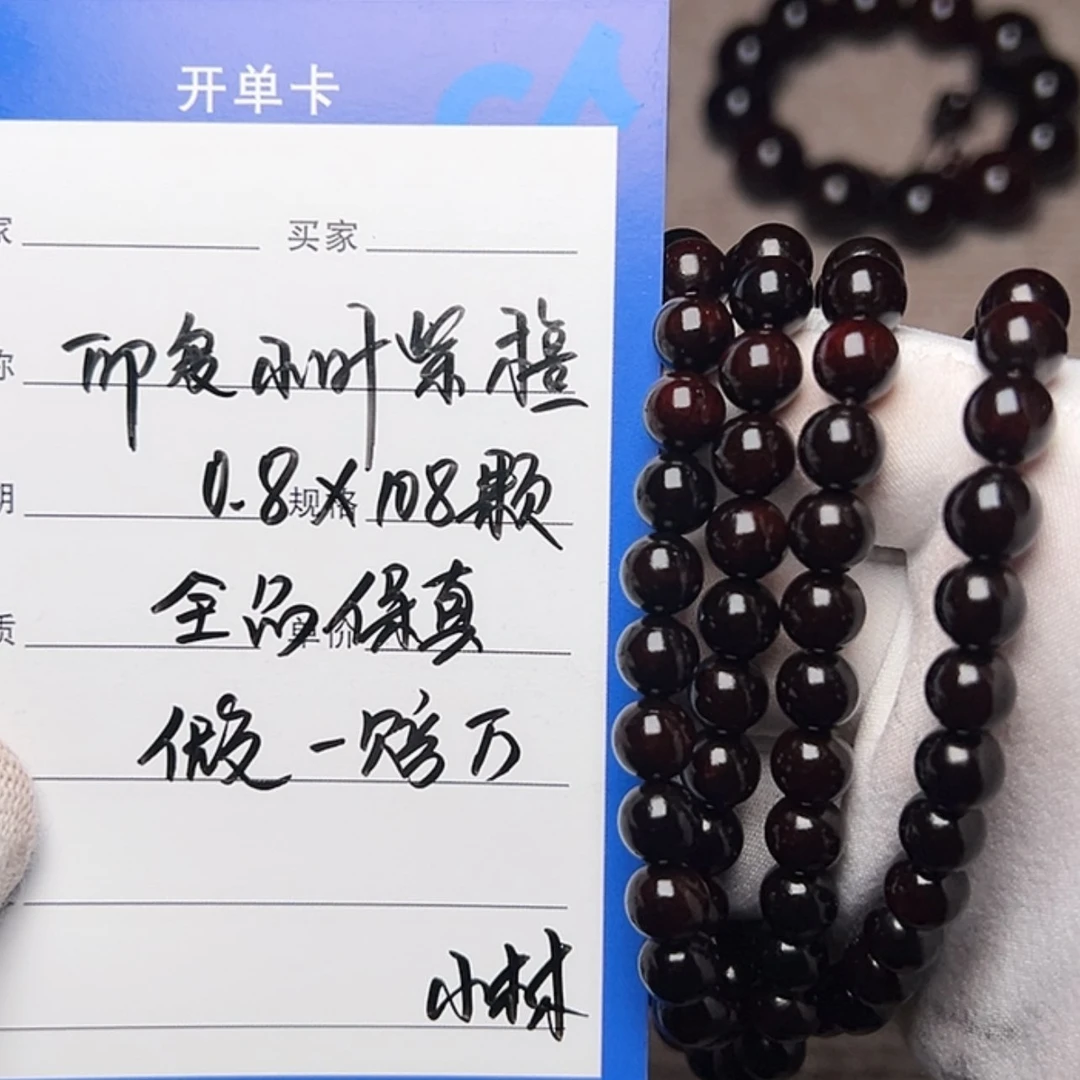 开单卡
家 买家
称 印度小叶紫檀
期 规格 0.8×108颗
质 单价 全品保真
假一赔万
小林